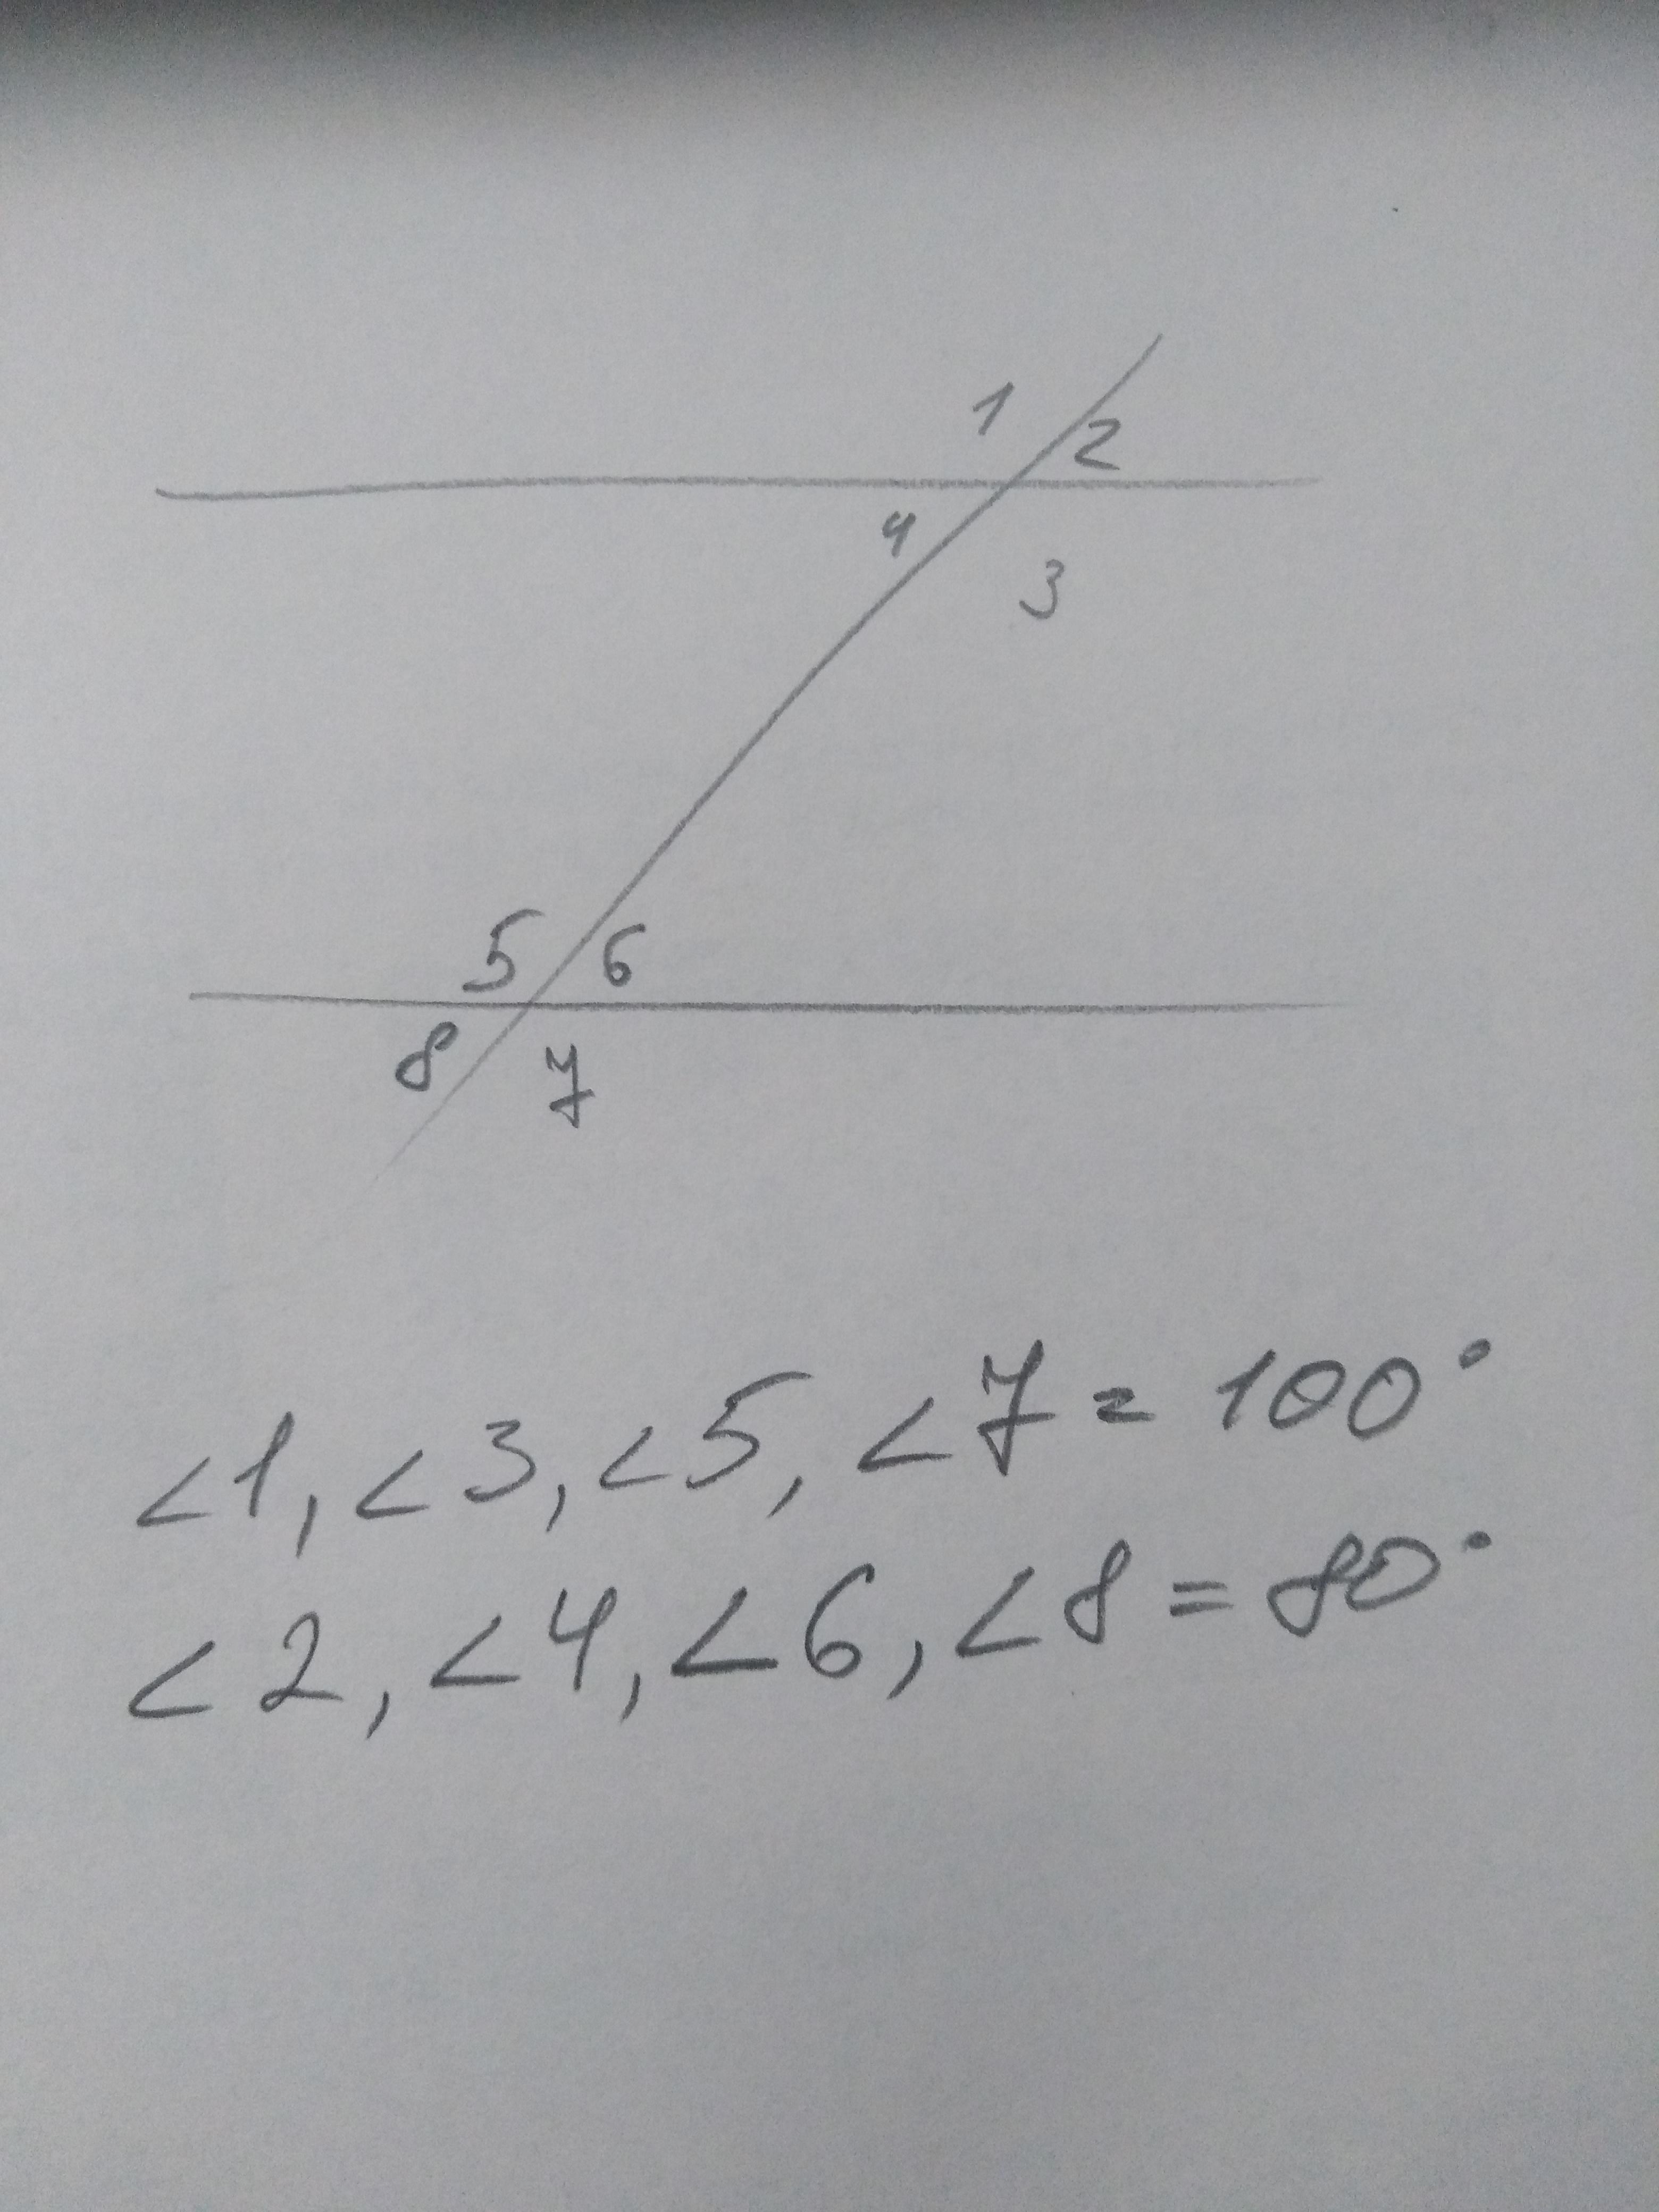 1
2
4
3
5 6
8 7
<1, <3, <5, <7 = 100°
<2, <4, <6, <8 = 80°